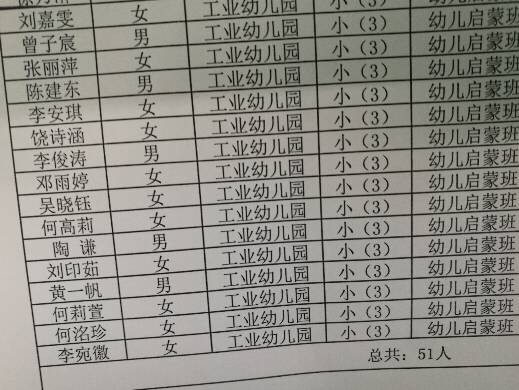 刘嘉雯 女 工业幼儿园 小（3） 幼儿启蒙班
曾子宸 男 工业幼儿园 小（3） 幼儿启蒙班
张丽萍 女 工业幼儿园 小（3） 幼儿启蒙班
陈建东 男 工业幼儿园 小（3） 幼儿启蒙班
李安琪 女 工业幼儿园 小（3） 幼儿启蒙班
饶诗涵 女 工业幼儿园 小（3） 幼儿启蒙班
李俊涛 男 工业幼儿园 小（3） 幼儿启蒙班
邓雨婷 女 工业幼儿园 小（3） 幼儿启蒙班
吴晓钰 女 工业幼儿园 小（3） 幼儿启蒙班
何高莉 女 工业幼儿园 小（3） 幼儿启蒙班
陶 谦 男 工业幼儿园 小（3） 幼儿启蒙班
刘印茹 女 工业幼儿园 小（3） 幼儿启蒙班
黄一帆 男 工业幼儿园 小（3） 幼儿启蒙班
何莉萱 女 工业幼儿园 小（3） 幼儿启蒙班
何洺珍 女 工业幼儿园 小（3） 幼儿启蒙班
李宛徽 女 工业幼儿园 小（3） 幼儿启蒙班
总共：51人